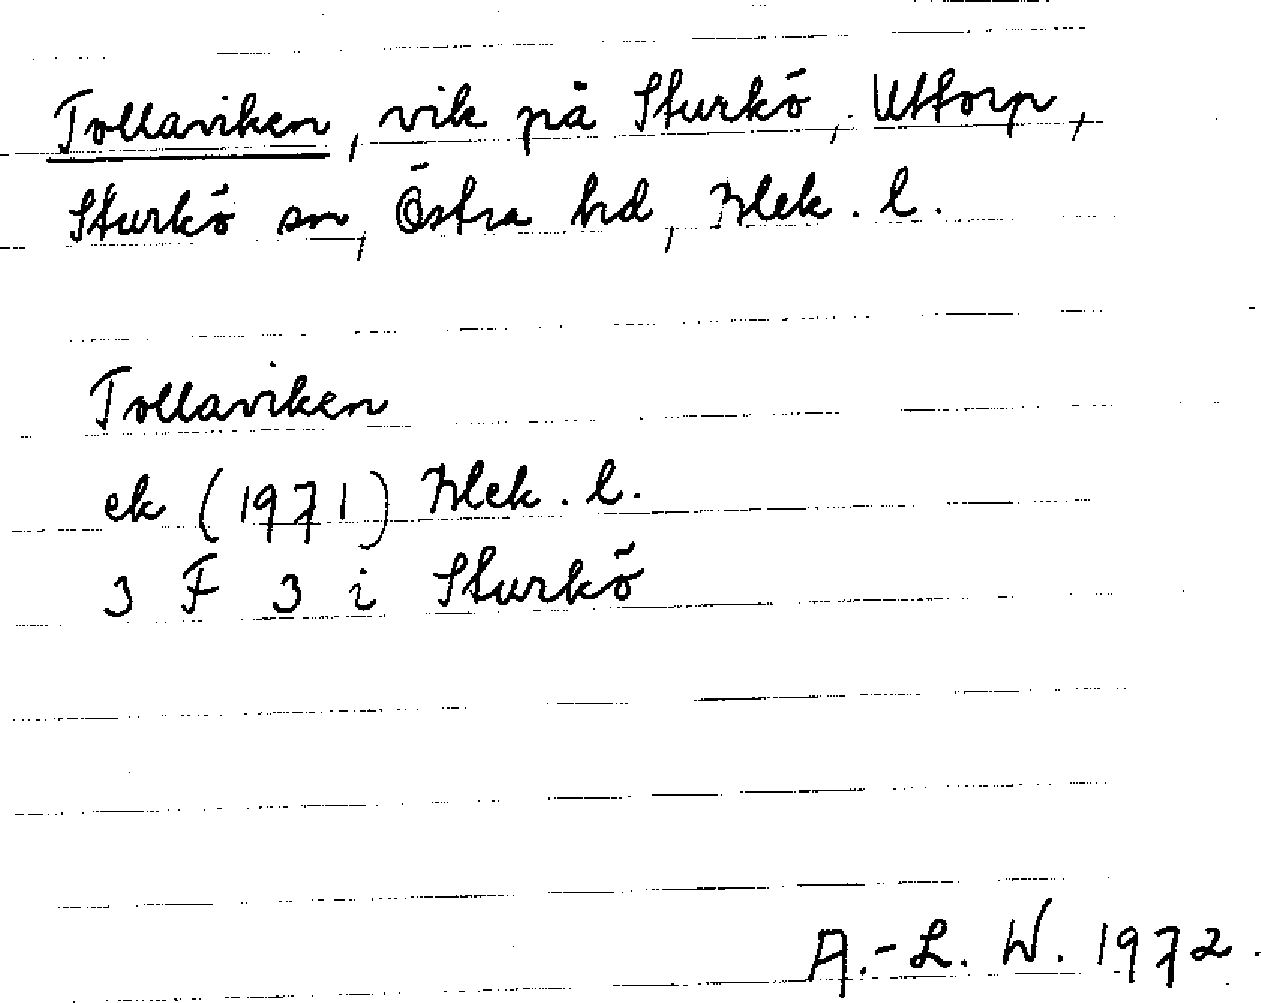 Tollaviken, vik på Sturkö, Uttorp,
Sturkö sn, Östra hd, Blek. l.
Tollaviken
ek (1971) Blek. l.
3 F 3 i Sturkö
A.-L. W. 1972.